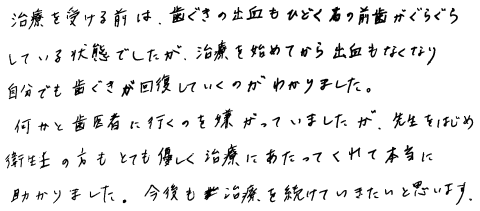 治療を受ける前は、歯ぐきの出血もひどく右の前歯がぐらぐら
している状態でしたが、治療を始めてから出血もなくなり
自分でも歯ぐきが回復していくのがわかりました。
何かと歯医者に行くのを嫌がっていましたが、先生をはじめ
衛生士の方もとても優しく治療にあたってくれて本当に
助かりました。今後も治療を続けていきたいと思います。